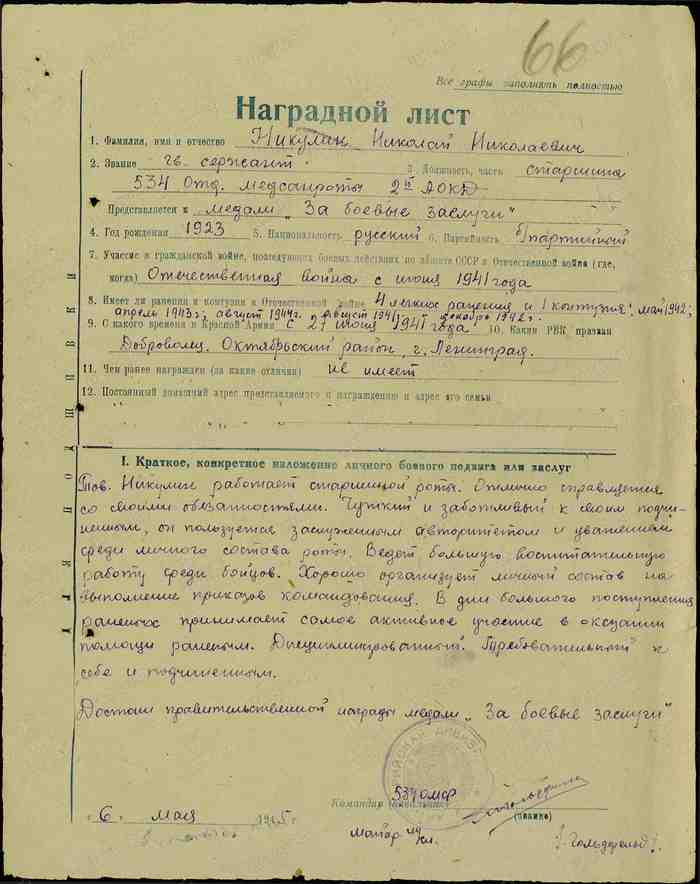 66
Все графы заполнять полностью
Наградной лист
1. Фамилия, имя и отчество Никулин Николай Николаевич
2. Звание гв. сержант. 3. Должность, часть старшина
534 Отд. медсанроты 2й АОКД
Представляется к медали „За боевые заслуги"
4. Год рождения 1923 5. Национальность русский 6. Партийность б/партийный
7. Участие в гражданской войне, последующих боевых действиях по защите СССР и Отечественной войне (где,
когда) Отечественная война с июня 1941 года
8. Имеет ли ранения и контузии в Отечественной войне 4 легких ранения и 1 контузия: май 1942;
апрель 1943г; август 1944г. август 1941 декабрь 1942 г.
9. С какого времени в Красной Армии с 27 июня 1941 года. 10. Каким РВК призван
Доброволец. Октябрьский район, г. Ленинград.
11. Чем ранее награжден (за какие отличия) не имеет
12. Постоянный домашний адрес представляемого к награждению и адрес его семьи
I. Краткое, конкретное изложение личного боевого подвига или заслуг
Тов. Никулин работает старшиной роты. Отлично справляется
со своими обязанностями. Чуткий и заботливый к своим подчи-
ненным, он пользуется заслуженным авторитетом и уважением
среди личного состава роты. Ведет большую воспитательную
работу среди бойцов. Хорошо организует личный состав на
выполнение приказов командования. В дни большого поступления
раненых принимает самое активное участие в оказании
помощи раненым. Дисциплинированный. Требовательный к
себе и подчиненным.
Достоин правительственной награды медали „За боевые заслуги"
534 ОМСР
Командир (начальник)
(подпись)
„6" мая 1945г.
майор м/сл. /Гольдфельд/.